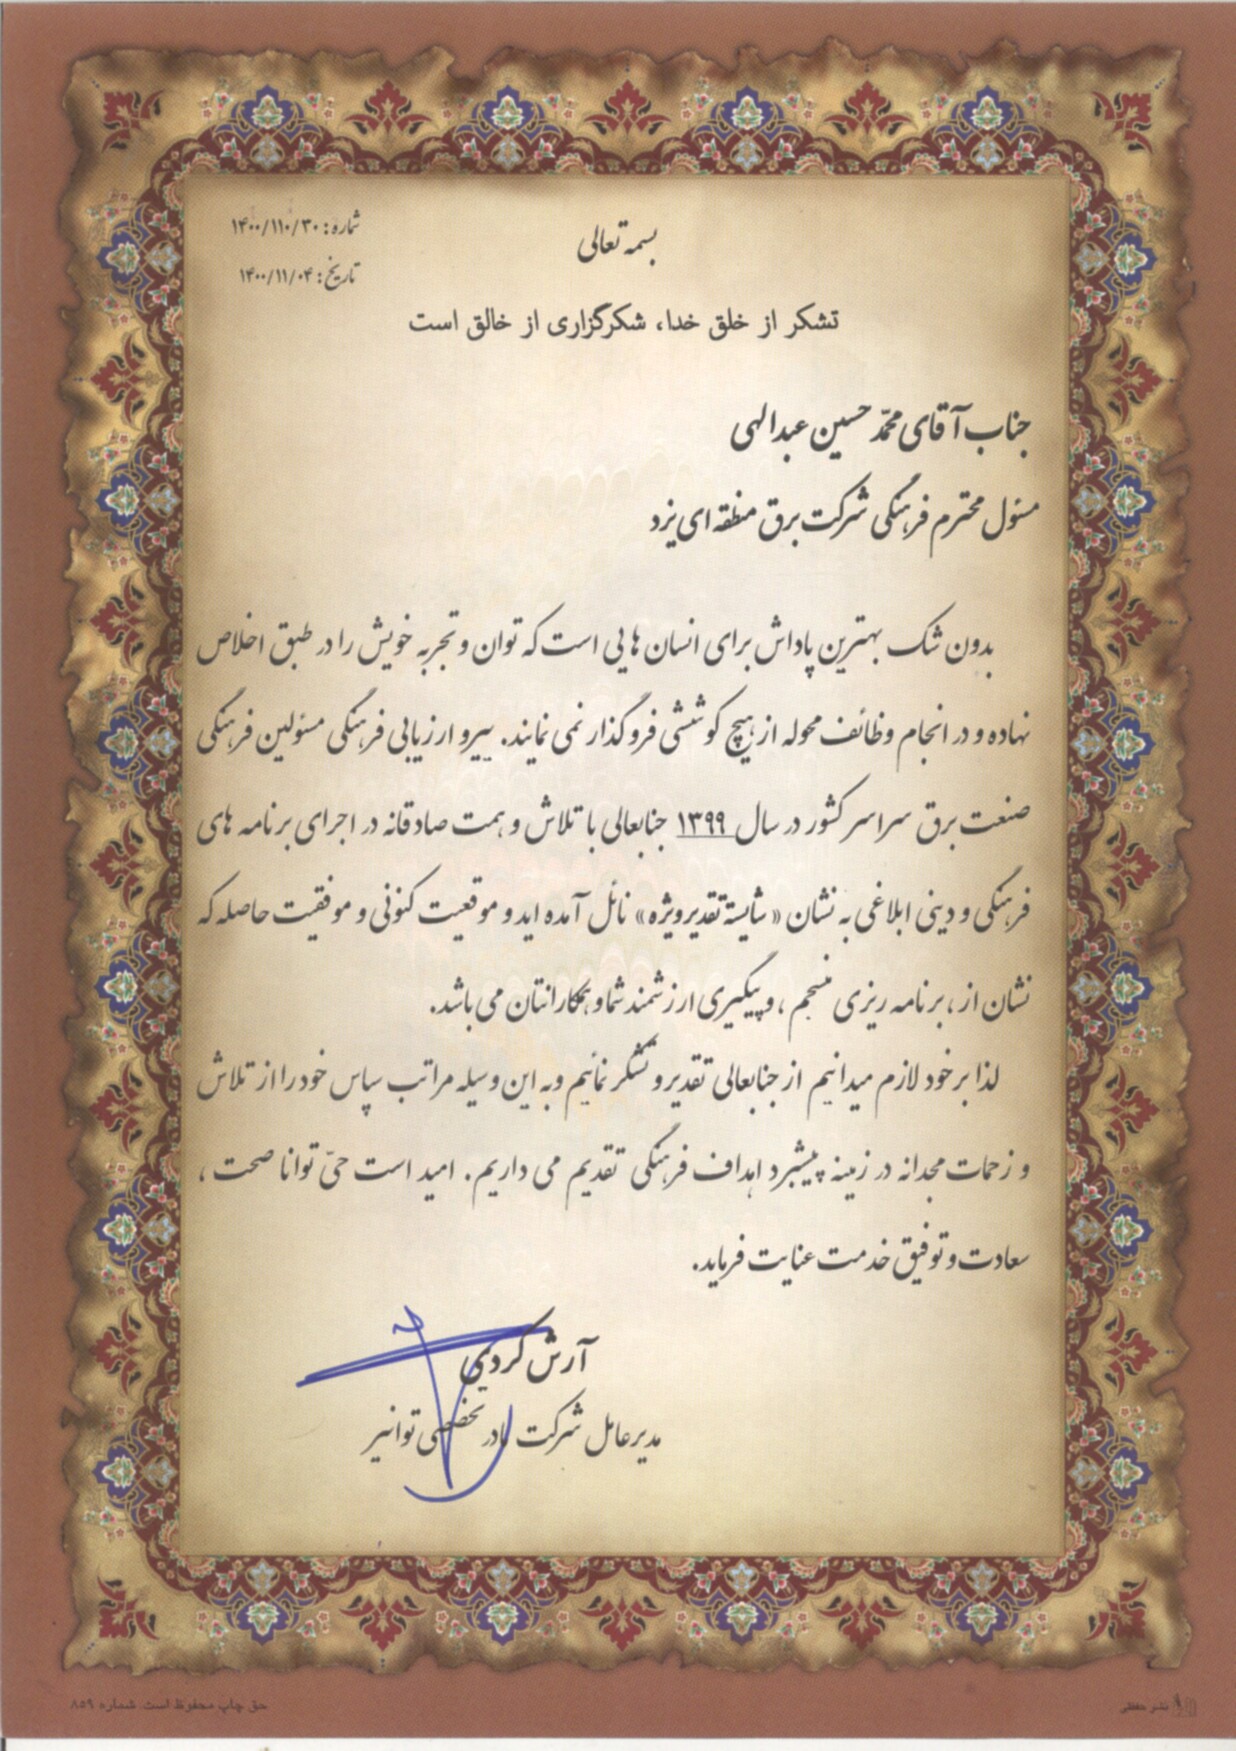 بسمه تعالی
شماره: ۱۴۰۰/۱۱۰/۳۰
تاریخ: ۱۴۰۰/۱۱/۰۴
تشکر از خلق خدا، شکرگزاری از خالق است
جناب آقای محمّد حسین عبدالهی
مسئول محترم فرهنگی شرکت برق منطقه ای یزد
بدون شک بهترین پاداش برای انسان هایی است که توان و تجربه خویش را در طبق اخلاص
نهاده و در انجام وظائف محوله از هیچ کوششی فروگذار نمی نمایند. پیرو ارزیابی فرهنگی مسئولین فرهنگی
صنعت برق سراسر کشور در سال ۱۳۹۹ جنابعالی با تلاش و همت صادقانه در اجرای برنامه های
فرهنگی و دینی ابلاغی به نشان «شایسته تقدیر ویژه» نائل آمده اید و موقعیت کنونی و موفقیت حاصله که
نشان از، برنامه ریزی منسجم، و پیگیری ارزشمند شما و همکارانتان می باشد.
لذا بر خود لازم میدانیم از جنابعالی تقدیر و تشکر نمائیم و به این وسیله مراتب سپاس خود را از تلاش
و زحمات مجدانه در زمینه پیشبرد اهداف فرهنگی تقدیم می داریم. امید است حیّ توانا صحت،
سعادت و توفیق خدمت عنایت فرماید.
آرش کردی
مدیرعامل شرکت مادر تخصصی توانیر
حق چاپ محفوظ است. شماره ۸۵۹